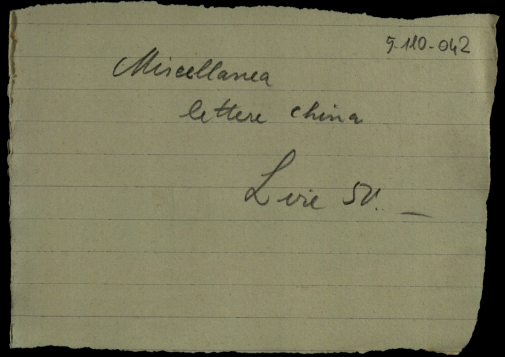 5-110-042
Miscellanea
lettere china
Lire 50. —